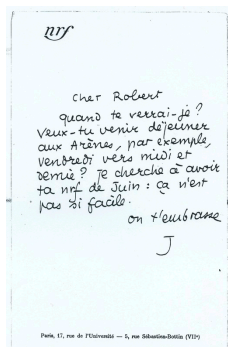 nrf
Cher Robert
quand te verrai-je ?
Veux-tu venir déjeuner
aux Arènes, par exemple,
vendredi vers midi et
demie ? Je cherche à avoir
ta nrf de Juin : ça n'est
pas si facile.
on t'embrasse
J
Paris, 17, rue de l'Université — 5, rue Sébastien-Bottin (VIIᵉ)